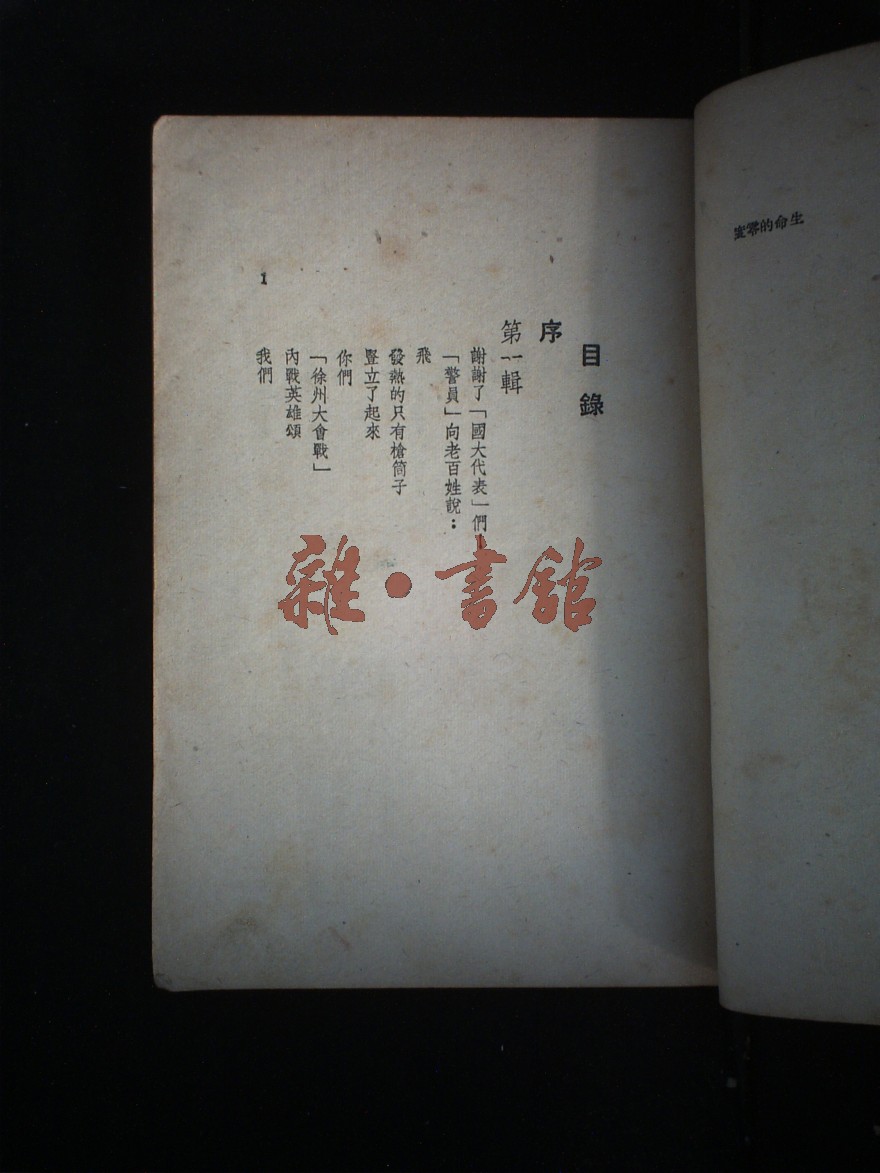 目錄
序
第一輯
謝謝了「國大代表」們！
「警員」向老百姓說：
飛
發熱的只有槍筒子
豎立了起來
你們
「徐州大會戰」
內戰英雄頌
我們
1
生命的零度
雜·書館